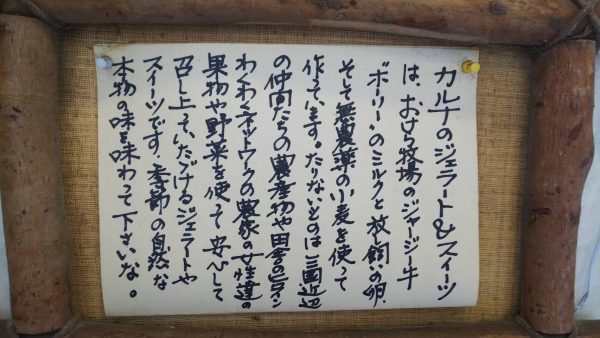 カルナのジェラート&スイーツ
は、おけら牧場のジャージー牛
ボリーのミルクと放し飼いの卵、
そして無農薬の小麦を使って
作っています。たりないものは三国近辺
の仲間たちの農産物や田舎のヒロイン
わくわくネットワークの農家の女性達の
果物や野菜を使って安心して
召し上っていただけるジェラートや
スイーツです。季節の自然な
本物の味を味わって下さいな。